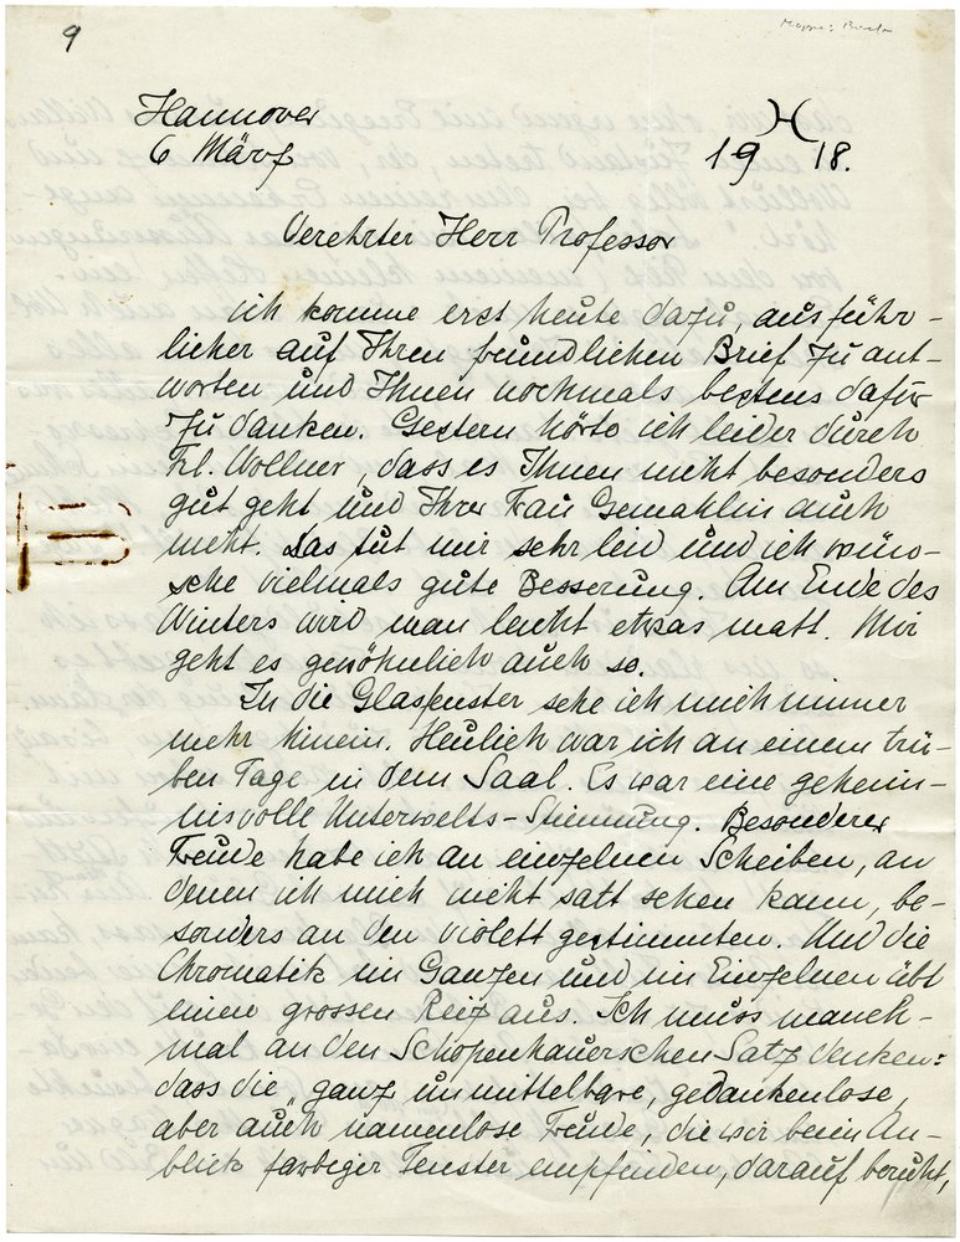 9
Mappe:
Hannover
6 März
19 18.
Verehrter Herr Professor
ich komme erst heute dazu, ausführ-
licher auf Ihren freundlichen Brief zu ant-
worten und Ihnen nochmals bestens dafür
zu danken. Gestern hörte ich leider durch
Frl. Wollner, dass es Ihnen nicht besonders
gut geht und Ihrer Frau Gemahlin auch
nicht. Das tut mir sehr leid und ich wün-
sche vielmals gute Besserung. Am Ende des
Winters wird man leicht etwas matt. Mir
geht es gewöhnlich auch so.
In die Glasfenster sehe ich mich immer
mehr hinein. Neulich war ich an einem trü-
ben Tage in dem Saal. Es war eine geheim-
nisvolle Unterwelts-Stimmung. Besondere
Freude habe ich an einzelnen Scheiben, an
denen ich mich nicht satt sehen kann, be-
sonders an den violett gestimmten. Und die
Chromatik im Ganzen und im Einzelnen übt
einen grossen Reiz aus. Ich muss manch-
mal an den Schopenhauerschen Satz denken:
dass die „ganz unmittelbare, gedankenlose,
aber auch namenlose Freude, die wir beim An-
blick farbiger Fenster empfinden, darauf beruht,